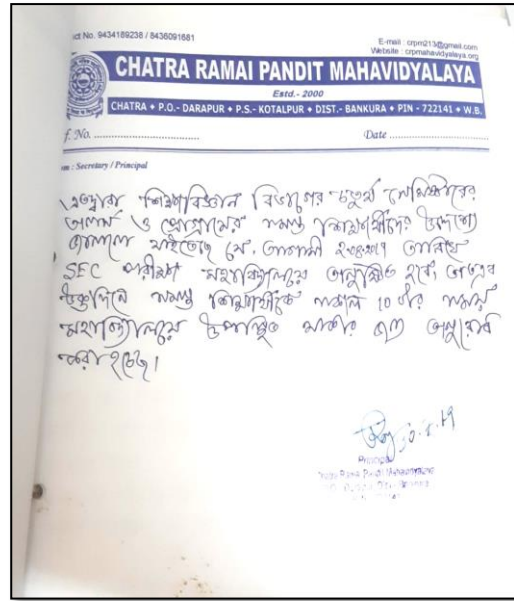 ct No. 9434189238 / 8436091681
E-mail : crpm213@gmail.com
Website : crpmahavidyalaya.org
CHATRA RAMAI PANDIT MAHAVIDYALAYA
Estd.- 2000
CHATRA ✦ P.O.- DARAPUR ✦ P.S.- KOTALPUR ✦ DIST.- BANKURA ✦ PIN - 722141 ✦ W.B.
f. No.
Date
om : Secretary / Principal
এতদ্বারা শিক্ষাবিজ্ঞান বিভাগের চতুর্থ সেমিস্টারের
অনার্স ও প্রোগ্রামের সমস্ত শিক্ষার্থীদের উদ্দেশ্যে
জানানো যাইতেছে যে, আগামী তারিখে
SEC পরীক্ষা মহাবিদ্যালয়ে অনুষ্ঠিত হবে, অতএব
উক্তদিনে সমস্ত শিক্ষার্থীকে সকাল 10 টার সময়
মহাবিদ্যালয়ে উপস্থিত থাকার জন্য অনুরোধ
করা হচ্ছে।
Principal